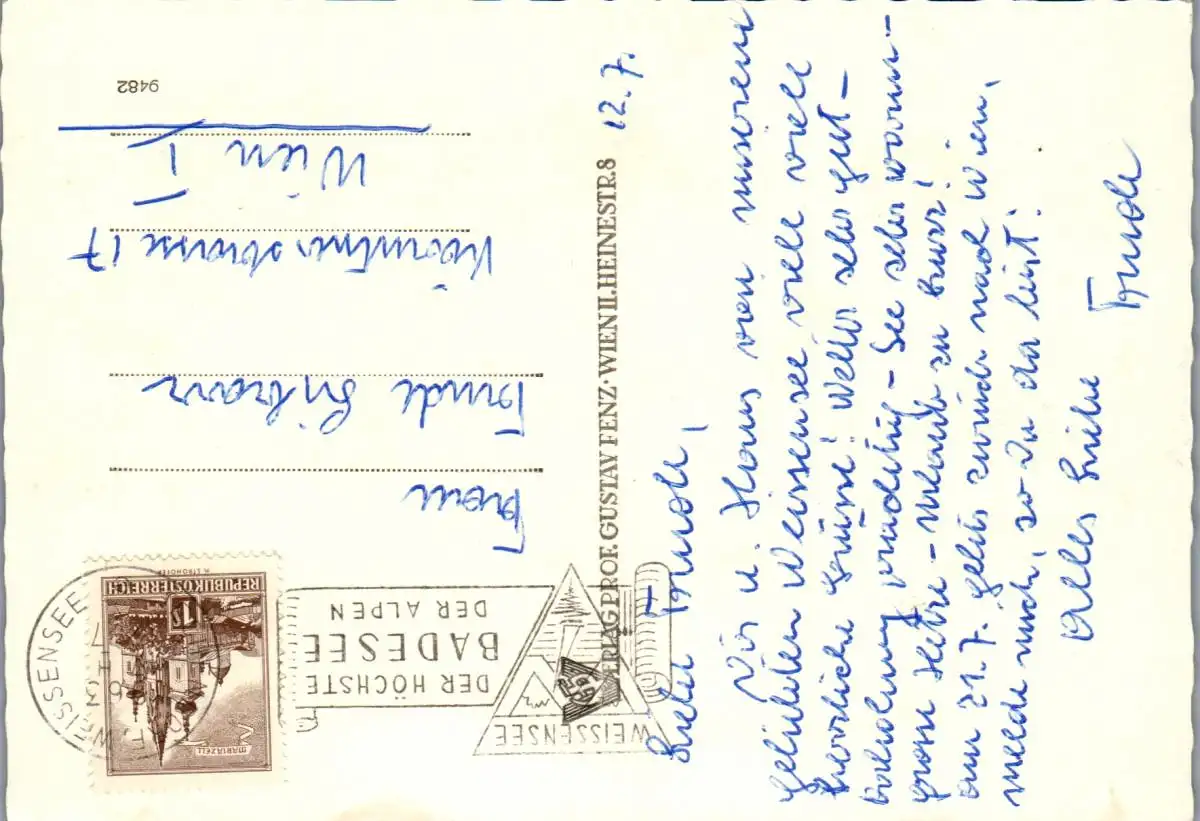 9482
REPUBLIK ÖSTERREICH
1 S
MARIAZELL
WEISSENSEE
DER HÖCHSTE
BADESEE
DER ALPEN
WEISSENSEE
Frau
Trude
Kärntnerstrasse 17
Wien I
VERLAG PROF. GUSTAV FENZ · WIEN II. HEINESTR. 8
12. 7.
Liebe Trude,
Dir u. Hans von unserem
geliebten Weissensee viele viele
herzliche Grüsse! Wetter sehr gut –
Erholung prächtig – See sehr warm –
grosse Hetze – Urlaub zu kurz!
am 21.7. gehts zurück nach Wien,
melde mich, ob Du da bist!
Alles Liebe
Trude